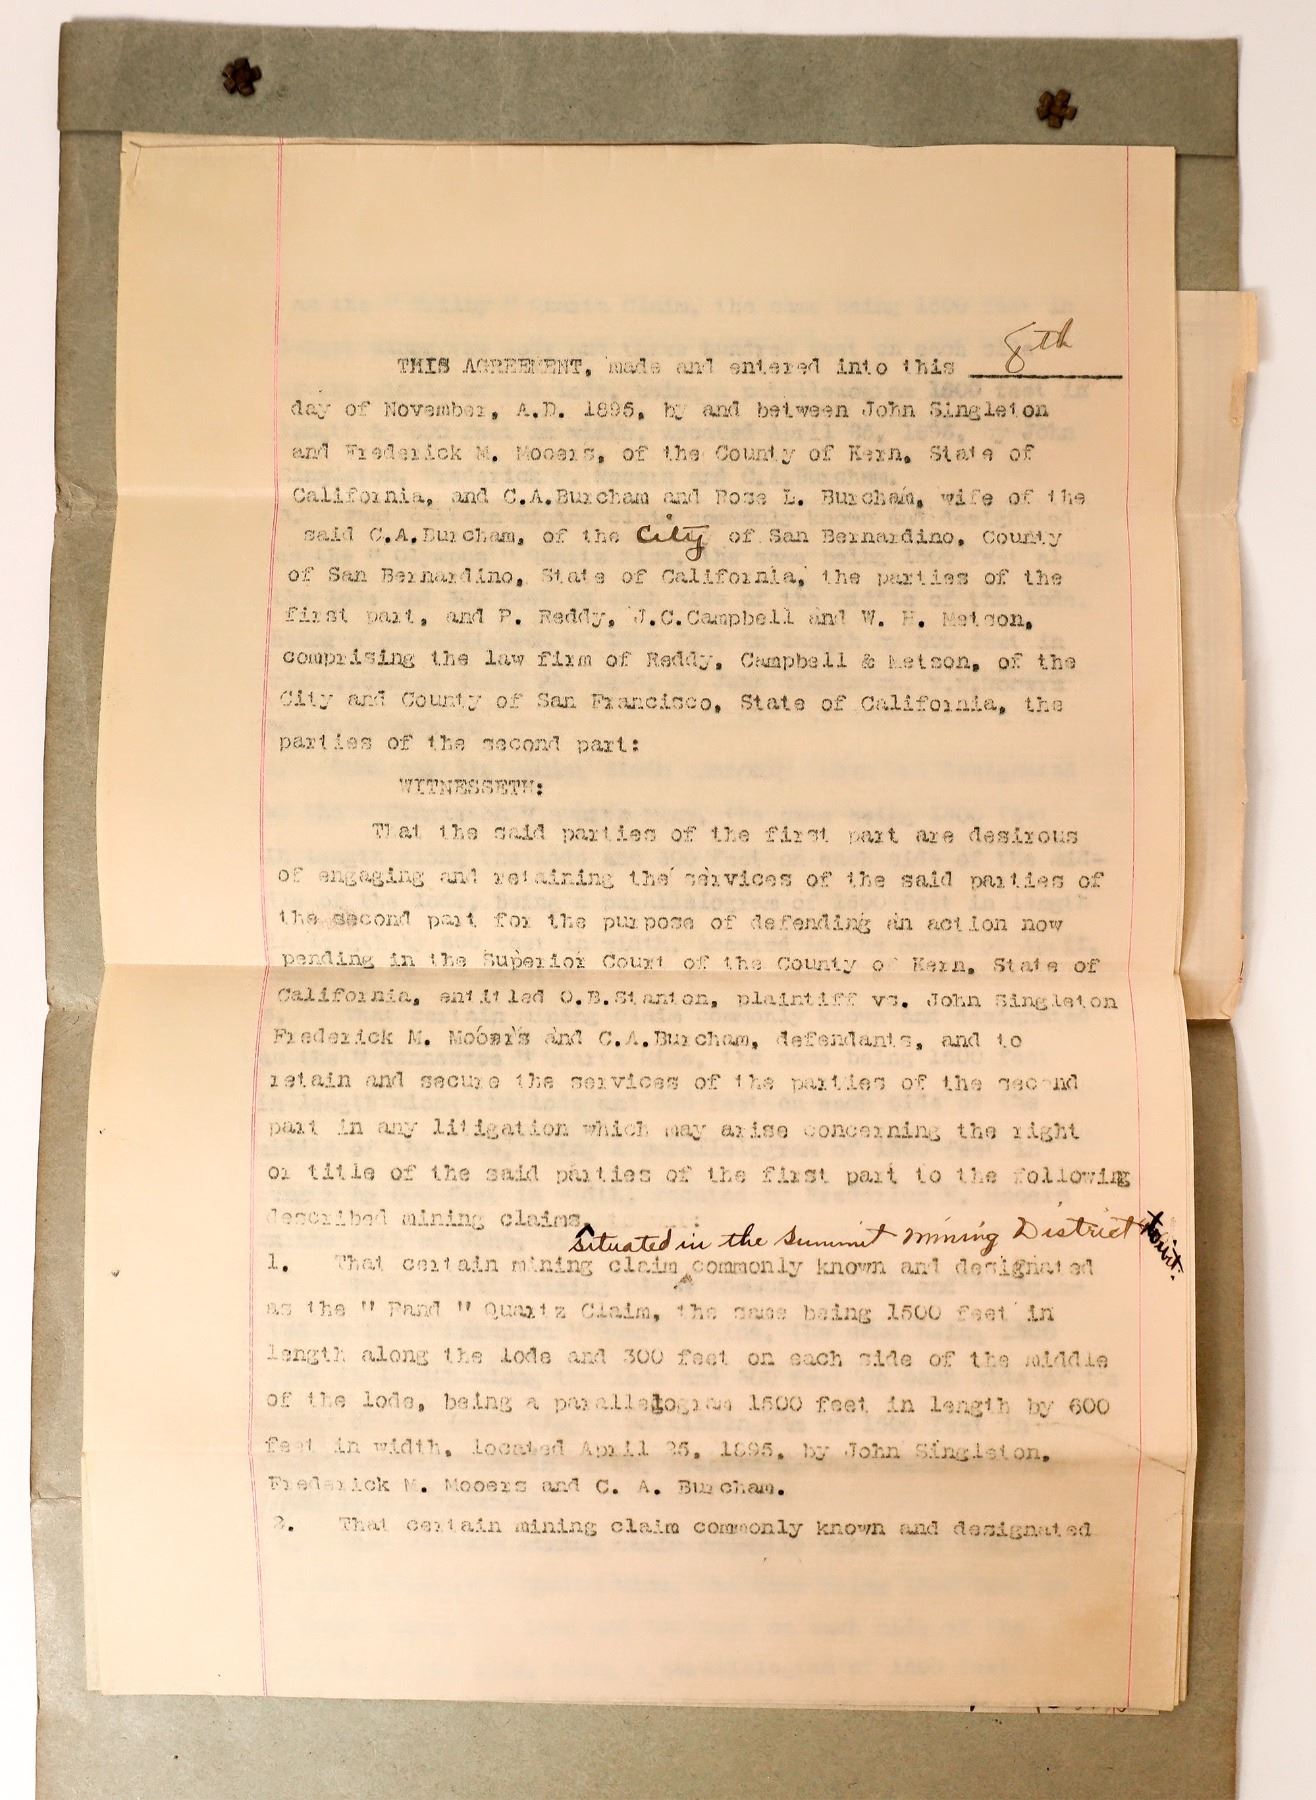 THIS AGREEMENT, made and entered into this 8th
day of November, A.D. 1895, by and between John Singleton
and Frederick M. Mooers, of the County of Kern, State of
California, and C.A.Burcham and Rose L. Burcham, wife of the
said C.A.Burcham, of the City of San Bernardino, County
of San Bernardino, State of California, the parties of the
first part, and P. Reddy, J.C.Campbell and W. H. Metson,
comprising the law firm of Reddy, Campbell & Metson, of the
City and County of San Francisco, State of California, the
parties of the second part:
WITNESSETH:
That the said parties of the first part are desirous
of engaging and retaining the services of the said parties of
the second part for the purpose of defending an action now
pending in the Superior Court of the County of Kern, State of
California, entitled O.B.Stanton, plaintiff vs. John Singleton
Frederick M. Mooers and C.A.Burcham, defendants, and to
retain and secure the services of the parties of the second
part in any litigation which may arise concerning the right
or title of the said parties of the first part to the following
described mining claims,
situated in the Summit Mining District towit:
1. That certain mining claim commonly known and designated
as the " Rand " Quartz Claim, the same being 1500 feet in
length along the lode and 300 feet on each side of the middle
of the lode, being a parallelogram 1500 feet in length by 600
feet in width, located April 25, 1895, by John Singleton,
Frederick M. Mooers and C. A. Burcham.
2. That certain mining claim commonly known and designated